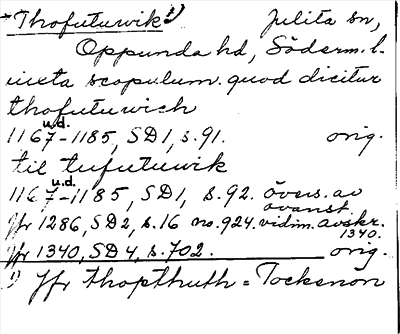 Thofutuwik 1) Julita sn,
Oppunda hd, Söderm. l.
iuxta scopulum quod dicitur
thofutuwich
u.d.
1167-1185, SD1, s. 91. orig.
til tufutuwik
u.d.
1167-1185, SD1, s. 92. övers. av
ovanst.
Jfr 1286, SD2, s. 16 no. 924. vidim. avskr.
1340.
Jfr 1340, SD4, s. 702. orig.
1) Jfr thopthruth = Tocksnon